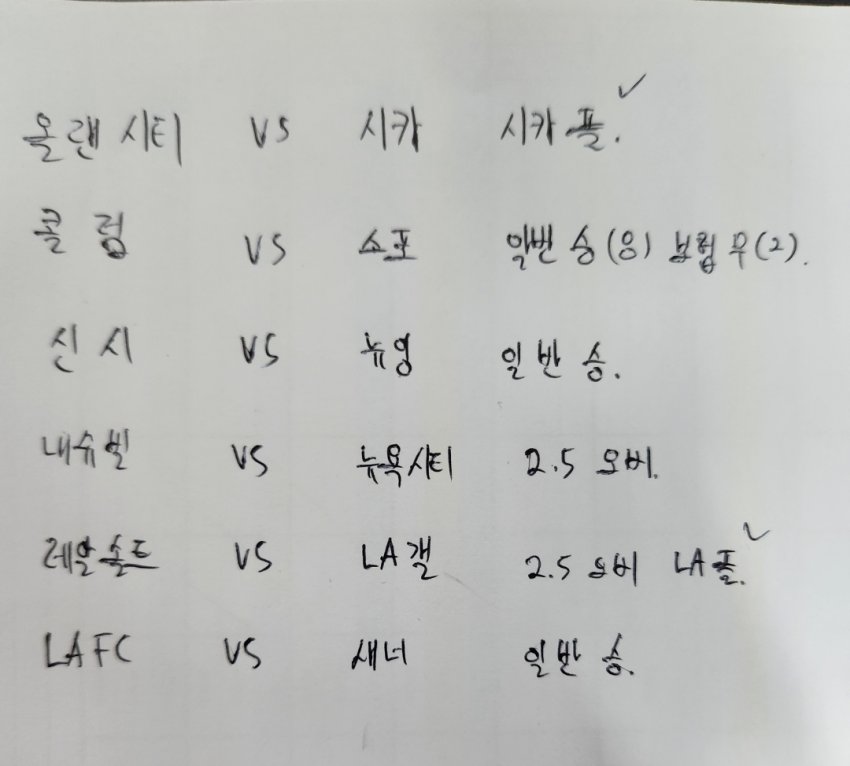 올랜시티 VS 시카 시카플.
콜럼 VS 쇼포 일반 승(응) 보험 무(2).
신시 VS 뉴영 일반 승.
내슈빌 VS 뉴욕시티 2.5 오버.
레알솔트 VS LA갤 2.5 오버 LA플.
LAFC VS 새너 일반 승.